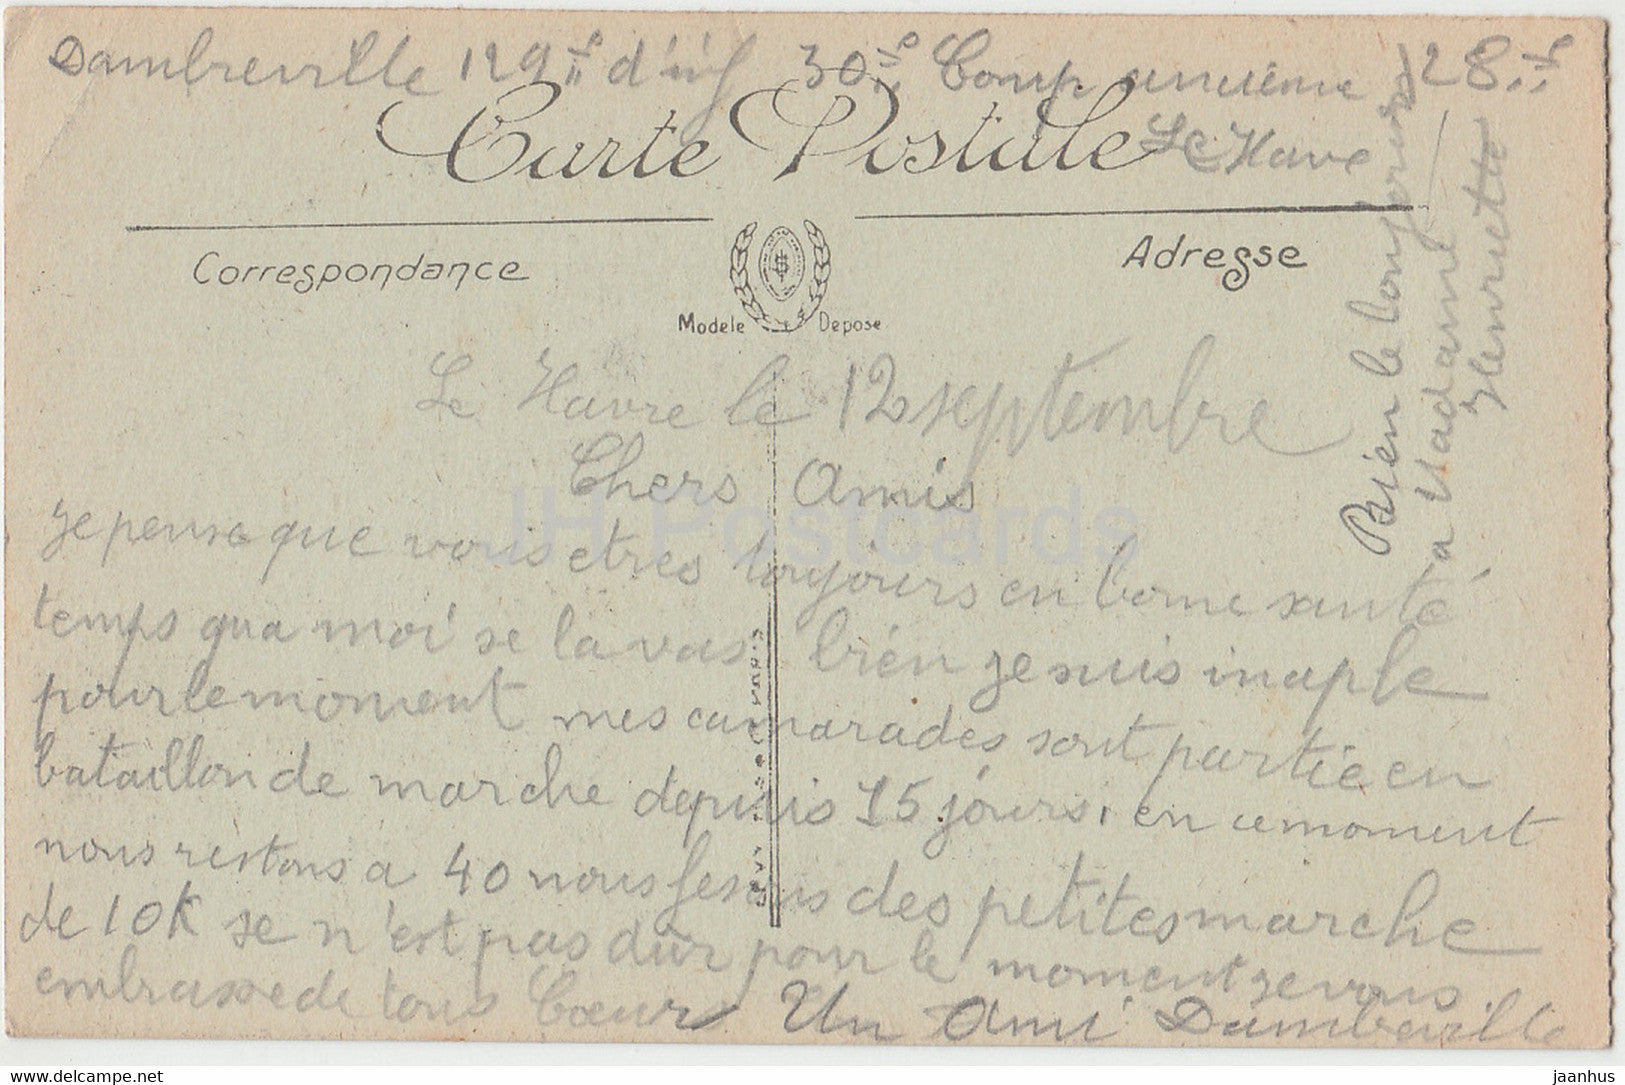 Dambreville 129e d'inf 30e Comp ancienne 28e
Le Havre
Carte Postale
Correspondance
Adresse
Modele Depose
Bien le bonjour
a Madame
Henriette
Le Havre le 12 septembre
Chers Amis
Je pense que vous etres toujours en bonne santé
temps qua moi se la vas bien je suis inaple
pour le moment mes camarades sont partie en
bataillon de marche depuis 15 jours, en ce moment
nous restons a 40 nous fesons des petites marche
de 10K se n'est pas dur pour le moment je vous
embrasse de tous Cœur Un Ami Dambreville
JH Postcards
www.delcampe.net
jaanhus